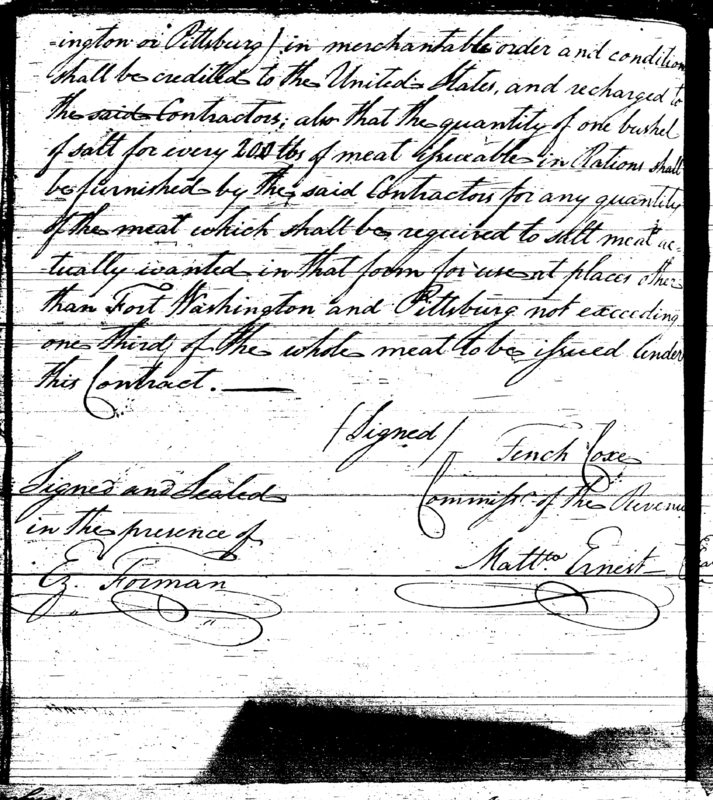 -ington or Pittsburg) in merchantable order and condition
shall be credited to the United States, and recharged to
the said Contractors; also that the quantity of one bushel
of salt for every 200 lbs of meat issueable in Rations shall
be furnished by the said Contractors for any quantity
of the meat which shall be required to salt meat ac-
-tually wanted in that form for use at places other
than Fort Washington and Pittsburg not exceeding
one third of the whole meat to be issued Under
this Contract.
(Signed) Tench Coxe
Signed and Sealed
Commissr. of the Revenue
in the presence of
Matths Ernest
Ez. Forman